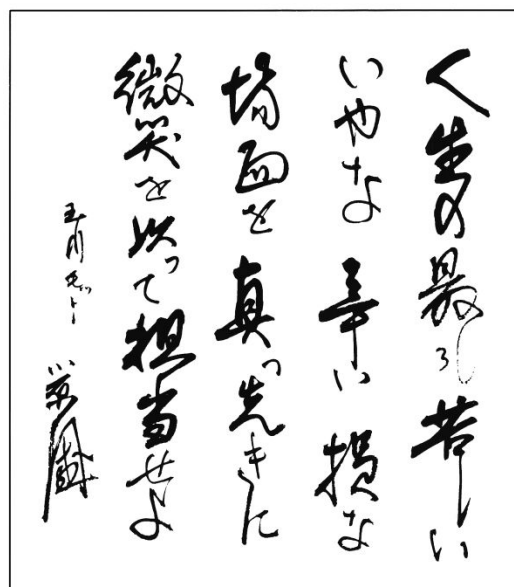 人生の最も苦しい
いやな 辛い 損な
場面を 真っ先きに
微笑を以って担当せよ
玉川
小原